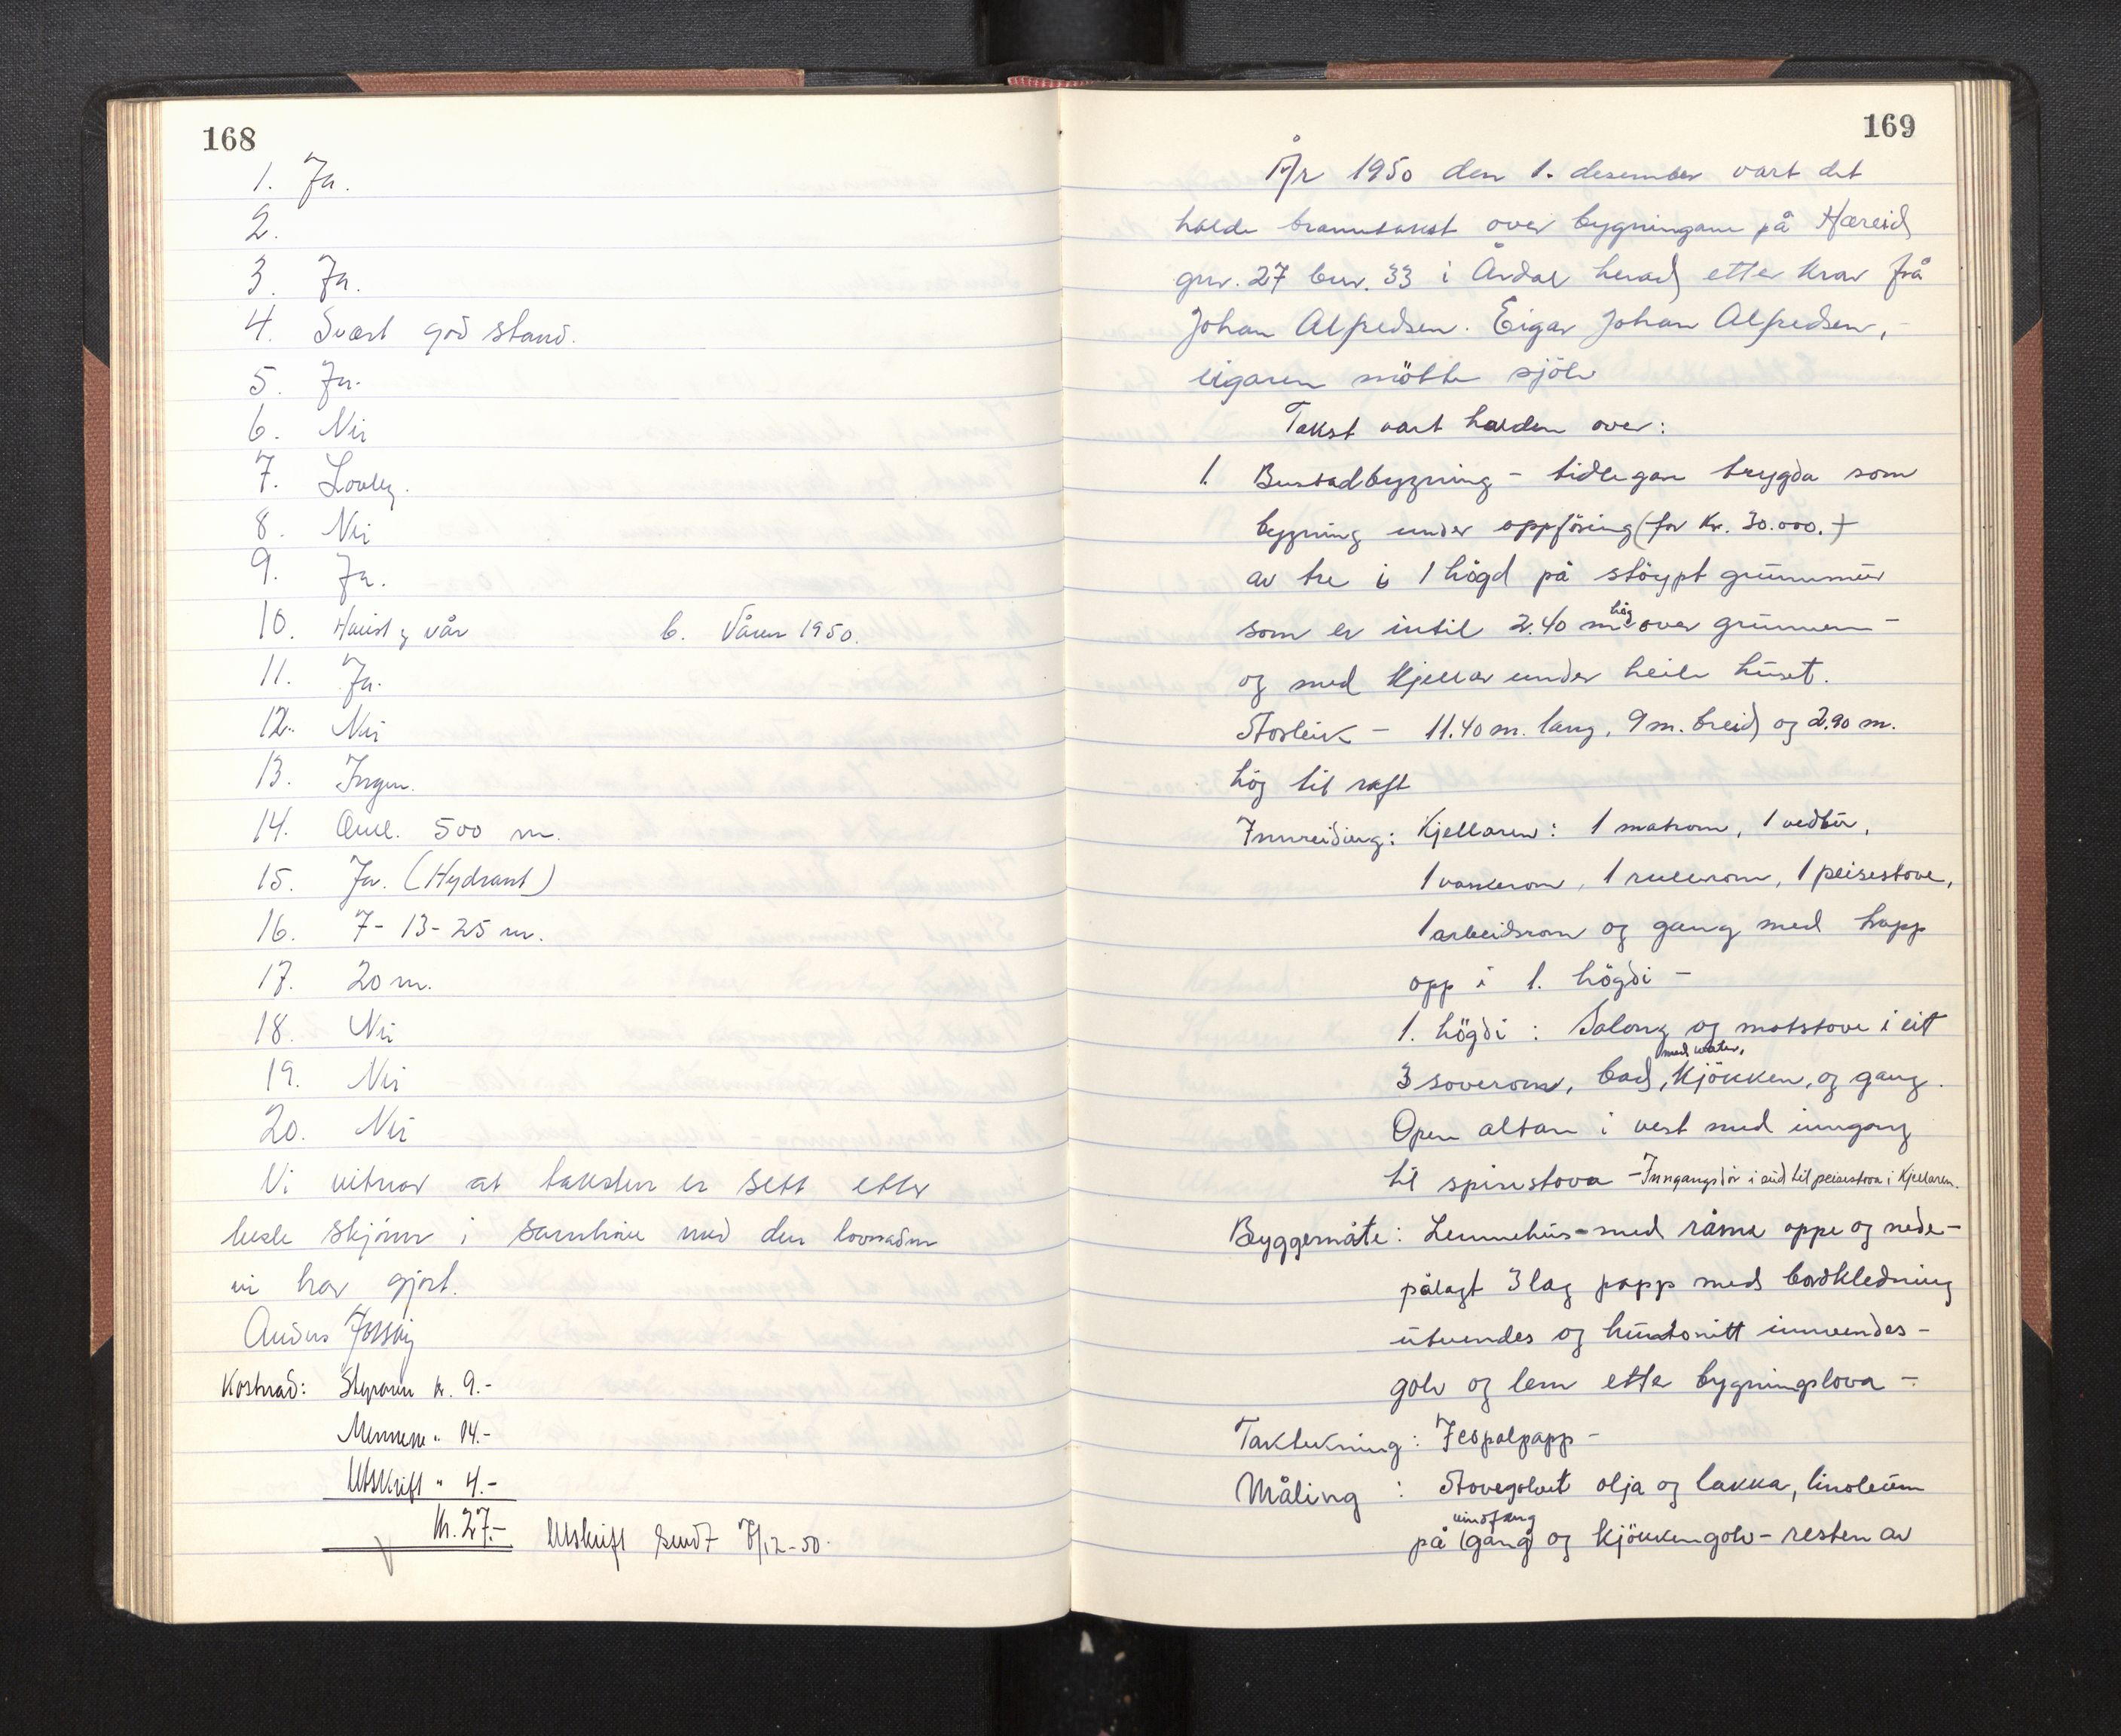 168
1. Ja.
2.
3. Ja.
4. Svært god stand.
5. Ja.
6. Nei
7. Lovleg.
8. Nei
9. Ja.
10. Haust og vår b. Våren 1950.
11. Ja.
12. Nei
13. Ingen.
14. Oml. 500 m.
15. Ja. (Hydrant)
16. 7-13-25 m.
17. 20 m.
18. Nei
19. Nei
20. Nei
Vi vitnar at taksten er sett etter
beste skjønn i samhøve med den lovnaden
vi har gjort.
Anders
Kostnad: Styraren kr. 9.-
Mennene " 14.-
Utskrift " 4.-
Kr. 27.- Utskrift sendt /12-50.
169
År 1950 den 1. desember vart det
halde branntakst over bygningane på Hæreid
gnr. 27 bnr. 33 i Årdal herad etter krav frå
Johan Alfredsen. Eigar Johan Alfredsen,-
eigaren møtte sjölv
Takst vart halden over:
1. Bustadbygning - tidlegare trygda som
bygning under oppföring (for Kr. 30.000.)
av tre i 1 högd på stöypt grunnmur
som er intil 2.40 m hög over grunnen -
og med kjellar under heile huset.
Storleik - 11.40 m. lang, 9 m. breid og 2.90 m.
hög til raft
Innreiding: Kjellaren: 1 matrom, 1 vedbu,
1 vaskerom, 1 rullerom, 1 peisestove,
1 arbeidsrom og gang med trapp
opp i 1. högdi -
1. högdi: Salong og matstove i eit
3 soverom, bad, med water, kjökken, og gang.
Open altan i vest med inngang
til spisestova - Inngangsdör i sud til peisestova i Kjellaren.
Byggemåte: Lemmehus - med råme oppe og nede -
pålagt 3 lag papp med bordkledning
utvendes og huntonitt innvendes -
golv og lem etter bygningslova -
Taktekning: Jespalpapp -
Måling: Stovegolvet olja og lakka, linoleum
på (gang) vindfang og kjökkengolv - resten av